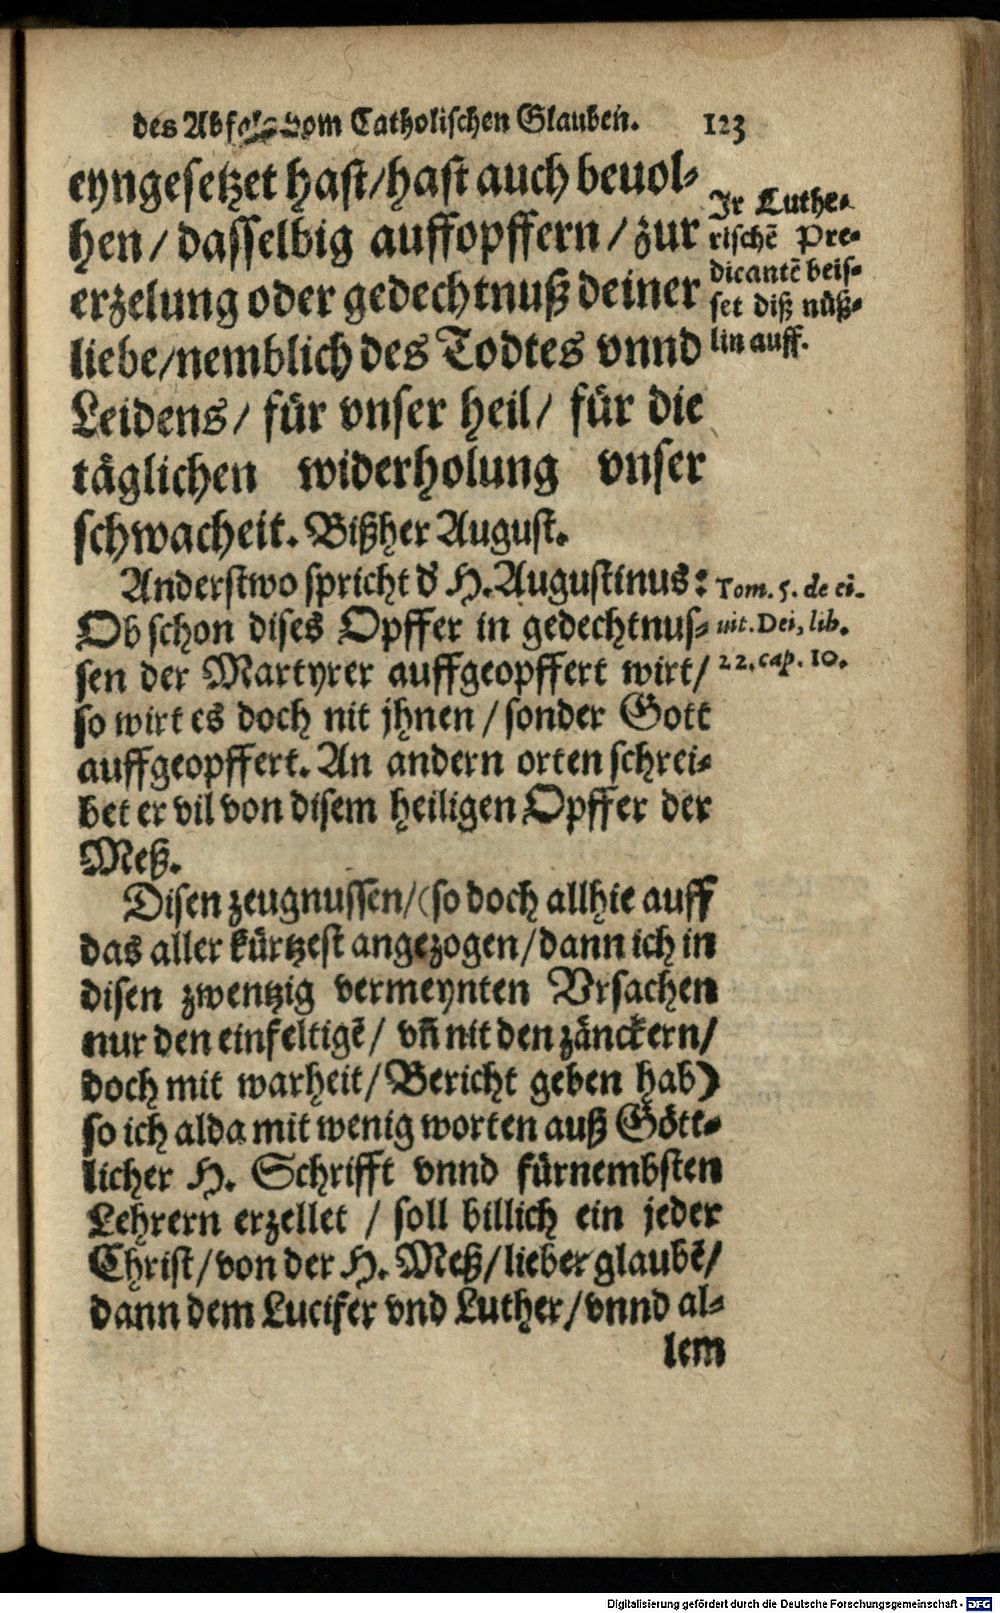 des Abfals vom Catholischen Glauben. 123
eyngesetzet hast/hast auch beuol-
hen/ dasselbig auffopffern/ zur
erzelung oder gedechtnuß deiner
liebe/nemblich des Todtes vnnd
Leidens/ für vnser heil/ für die
täglichen widerholung vnser
schwacheit. Bißher August.
Jr Luthe-
rischẽ Pre-
dicantẽ beis-
set diß nüß-
lin auff.
Anderstwo spricht d H. Augustinus:
Ob schon dises Opffer in gedechtnus-
sen der Martyrer auffgeopffert wirt/
so wirt es doch nit jhnen/ sonder Gott
auffgeopffert. An andern orten schrei-
bet er vil von disem heiligen Opffer der
Meß.
Tom. 5. de ci-
uit. Dei, lib.
22. cap. 10.
Disen zeugnussen/(so doch allhie auff
das aller kürtzest angezogen/dann ich in
disen zwentzig vermeynten Vrsachen
nur den einfeltigẽ/ vñ nit den zänckern/
doch mit warheit/Bericht geben hab)
so ich alda mit wenig worten auß Gött-
licher H. Schrifft vnnd fürnembsten
Lehrern erzellet / soll billich ein jeder
Christ/von der H. Meß/lieber glaubẽ/
dann dem Lucifer vnd Luther/vnnd al-
lem
Digitalisierung gefördert durch die Deutsche Forschungsgemeinschaft - DFG